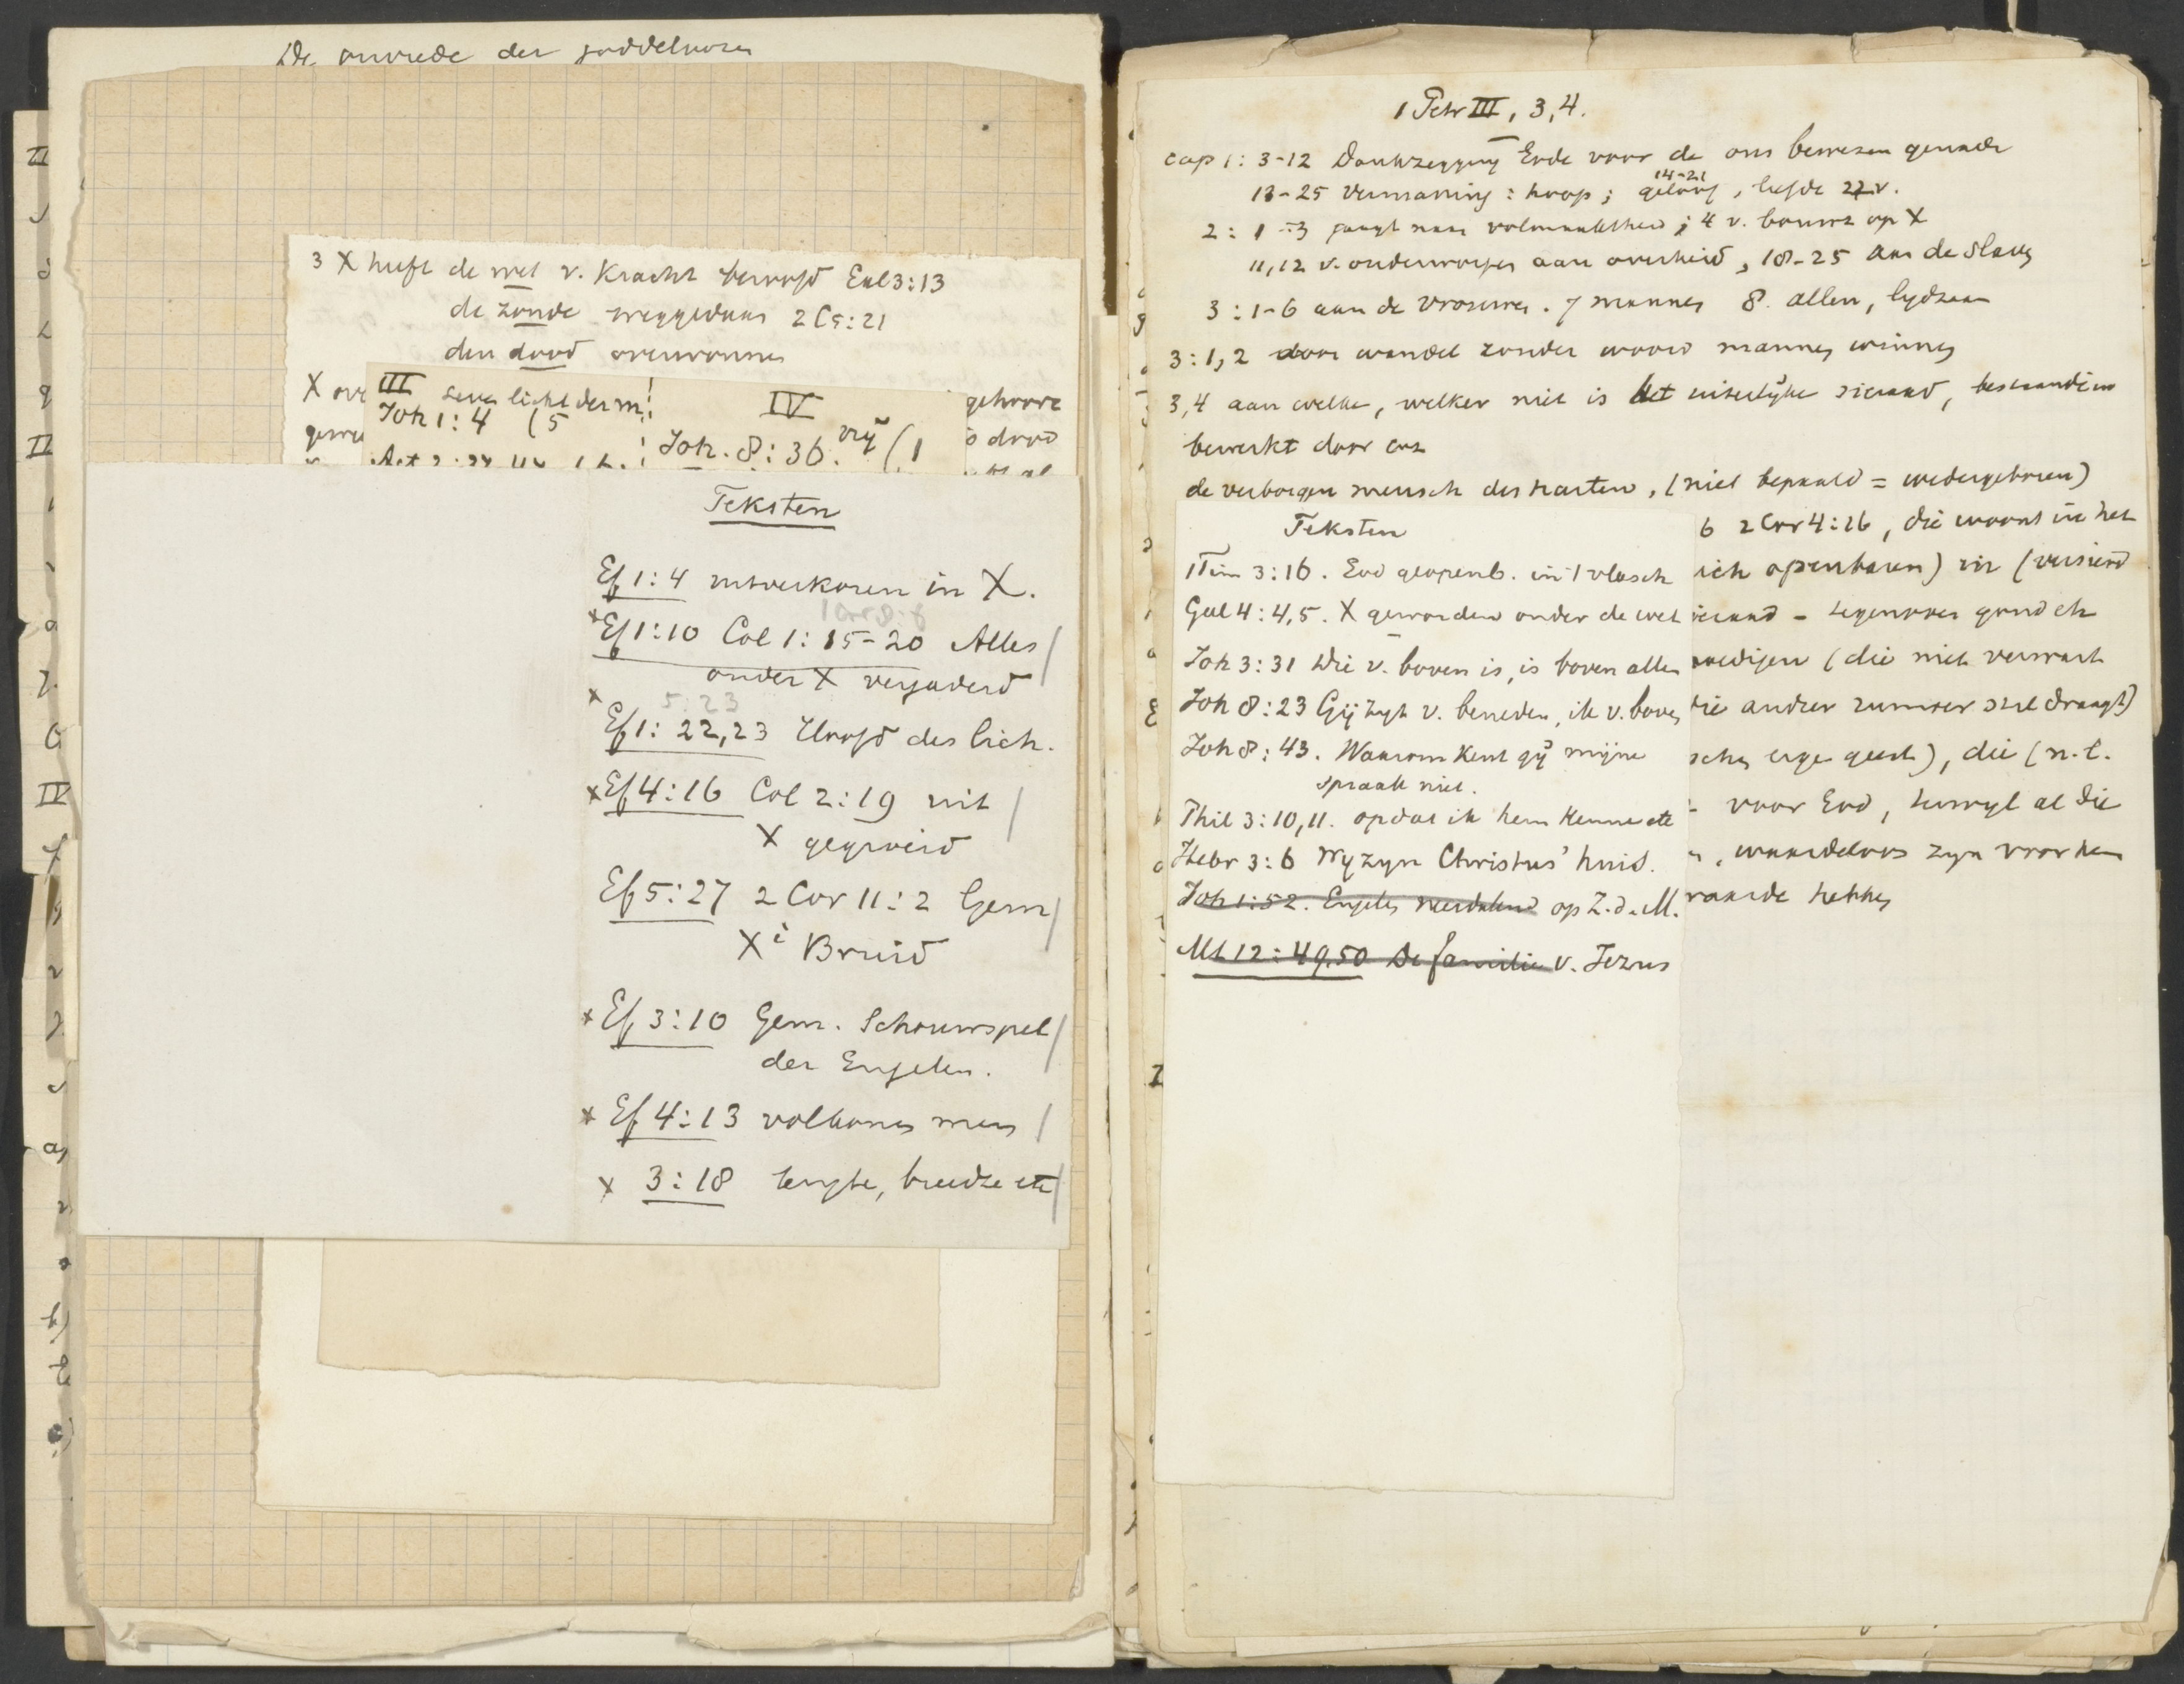 De onvrede der goddeloozen
3 X heeft de wet v. Kracht beroofd Gal 3:13
de zonde weggedaan 2 C 5:21
den dood overwonnen
X ove
gehoorz
III leven licht der m!
Joh 1:4 (5
IV
Joh. 8:36. vrij (1
s dood
Teksten
Ef 1:4 uitverkoren in X.
1 Cor 8:6
x Ef 1:10 Col 1: 15-20 Alles
onder X vergaderd
5:23
x Ef 1: 22,23 Hoofd des lich.
x Ef 4:16 Col 2:19 uit
X gegroeid
Ef 5:27 2 Cor 11:2 Gem
Xi Bruid
x Ef 3:10 Gem. Schouwspel
der Engelen.
x Ef 4:13 volkomen man
x 3:18 lengte, breedte etc
1 Petr III, 3,4.
cap 1: 3-12 Dankzegging Gode voor de ons bewezen genade
14-21
13-25 Vermaning: hoop; geloof, liefde 22 v.
2: 1-3 jaagt naar volmaaktheid; 4 v. bouwt op X
11,12 v. onderworpen aan overheid, 18-25 aan de Slaven
3:1-6 aan de vrouwen. 7 mannen 8. allen, lydzaam
3:1,2 door wandel zonder woord mannen winnen
3,4 aan welke, welker niet is het uiterlijke sieraad, bestaande in
bewerkt door enz
de verborgen mensch des harten, (niet bepaald = wedergeboren)
6 2 Cor 4:16, die woont in het
Teksten
1 Tim 3:16. God geopenb. in 't vleesch
zich openbaren) in (versierd
Gal 4:4,5. X geworden onder de wet
sieraad - tegenover goud etc
Joh 3:31 Die v. boven is, is boven allen
moedigen (die niet verwart
Joh 8:23 Gij zyt v. beneden, ik v. boven
die andren zonder stil draagt)
Joh 8:43. Waarom kent gij mijne
spraak niet.
geest), die (n.l.
Phil 3:10,11. opdat ik hem kenne etc
voor God, terwyl al die
Hebr 3:6 Wy zyn Christus' huis.
waardeloos zyn voor hem
Joh 1:52. Engelen neerdalend op Z.d.M.
waarde hebben
Mt 12:49,50 De familie v. Jezus